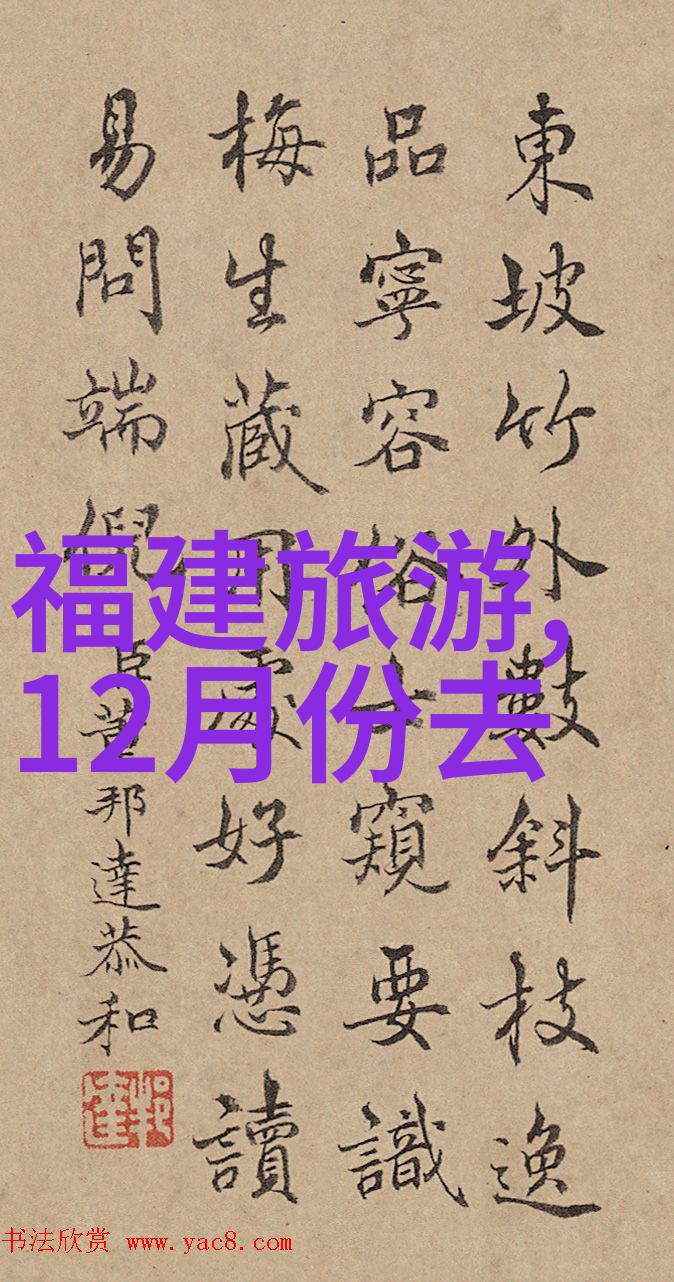 東坡竹外數斜枝逸
品寧容俗士窺要識
梅生藏用處好憑讀
易問端倪
臣董邦達恭和
福建旅游,
12月份去
书法欣赏 www.yac8.com